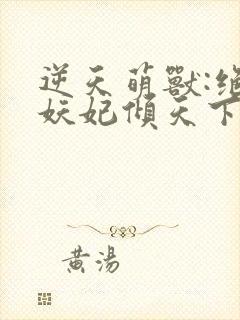 逆天萌獸:絕
妖妃傾天下
黃湯